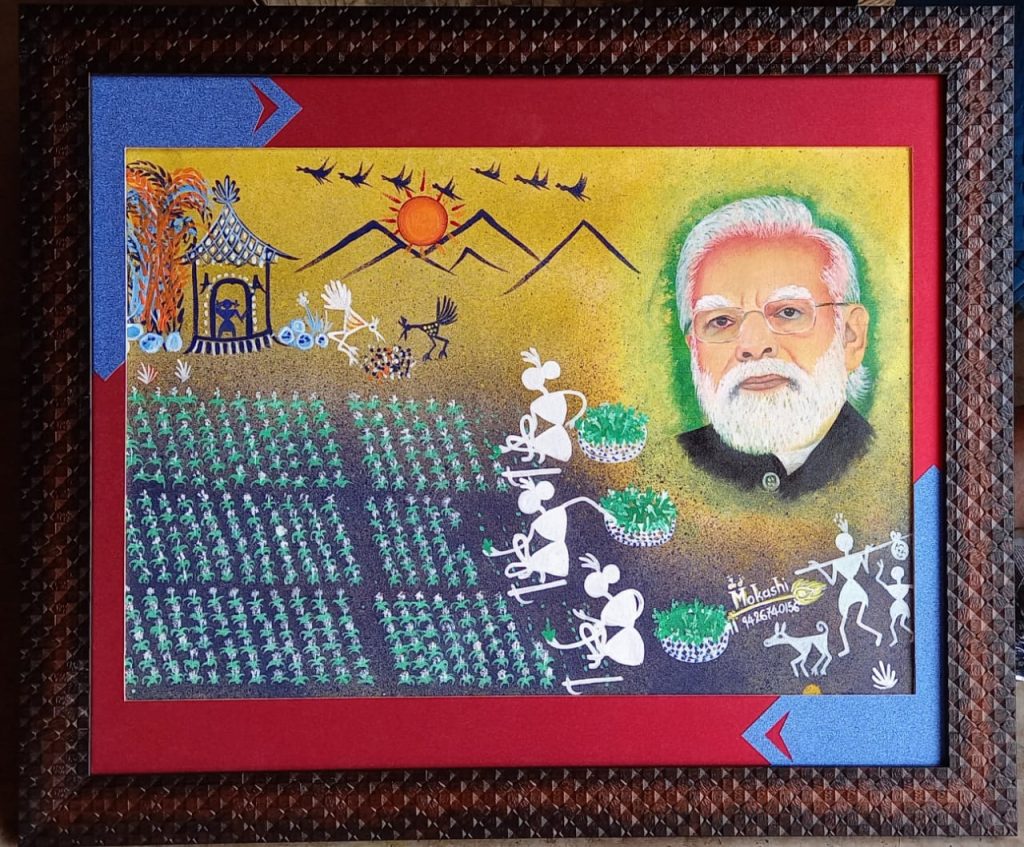 Mokashi
9426740156